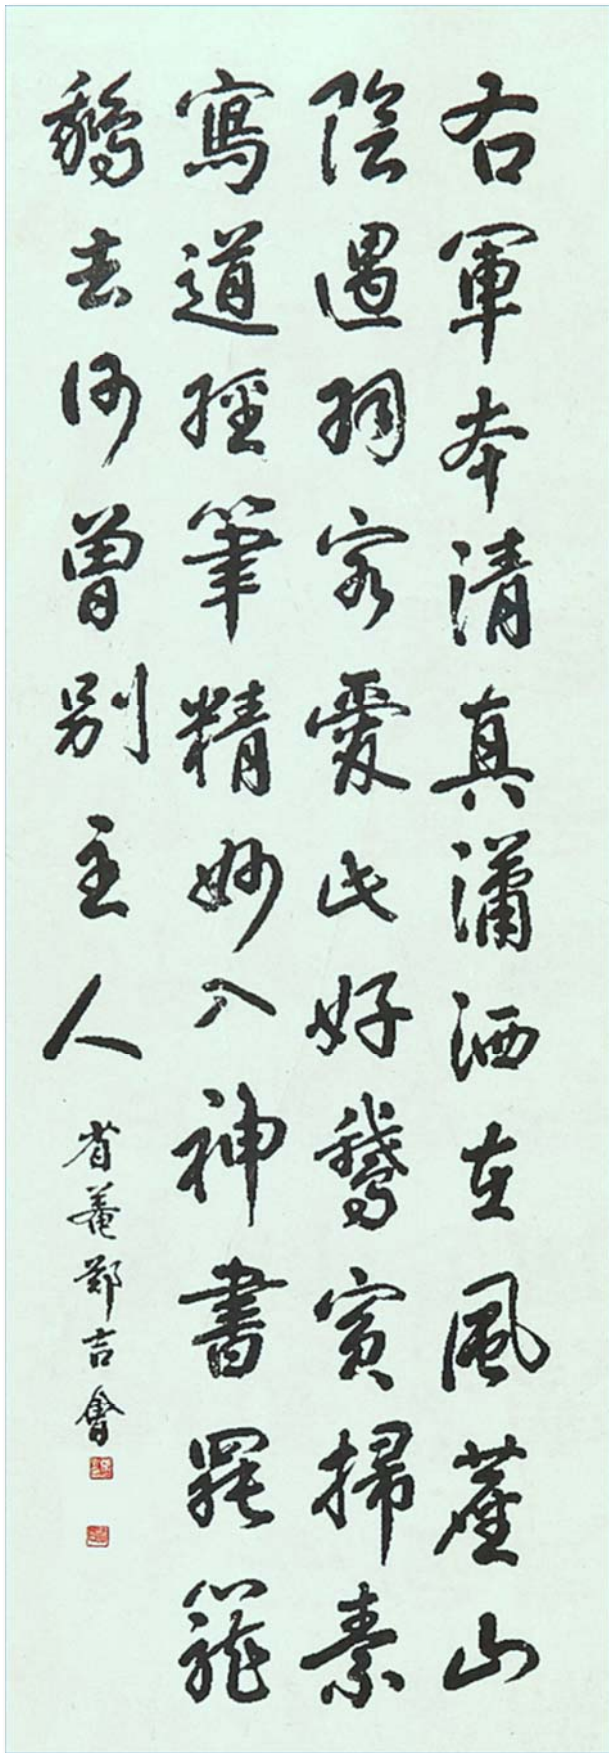 右軍本清真瀟洒在風塵山
陰遇羽客愛此好鵝賓掃素
寫道經筆精妙入神書罷籠
鵝去何曾別主人
省菴鄭吉會